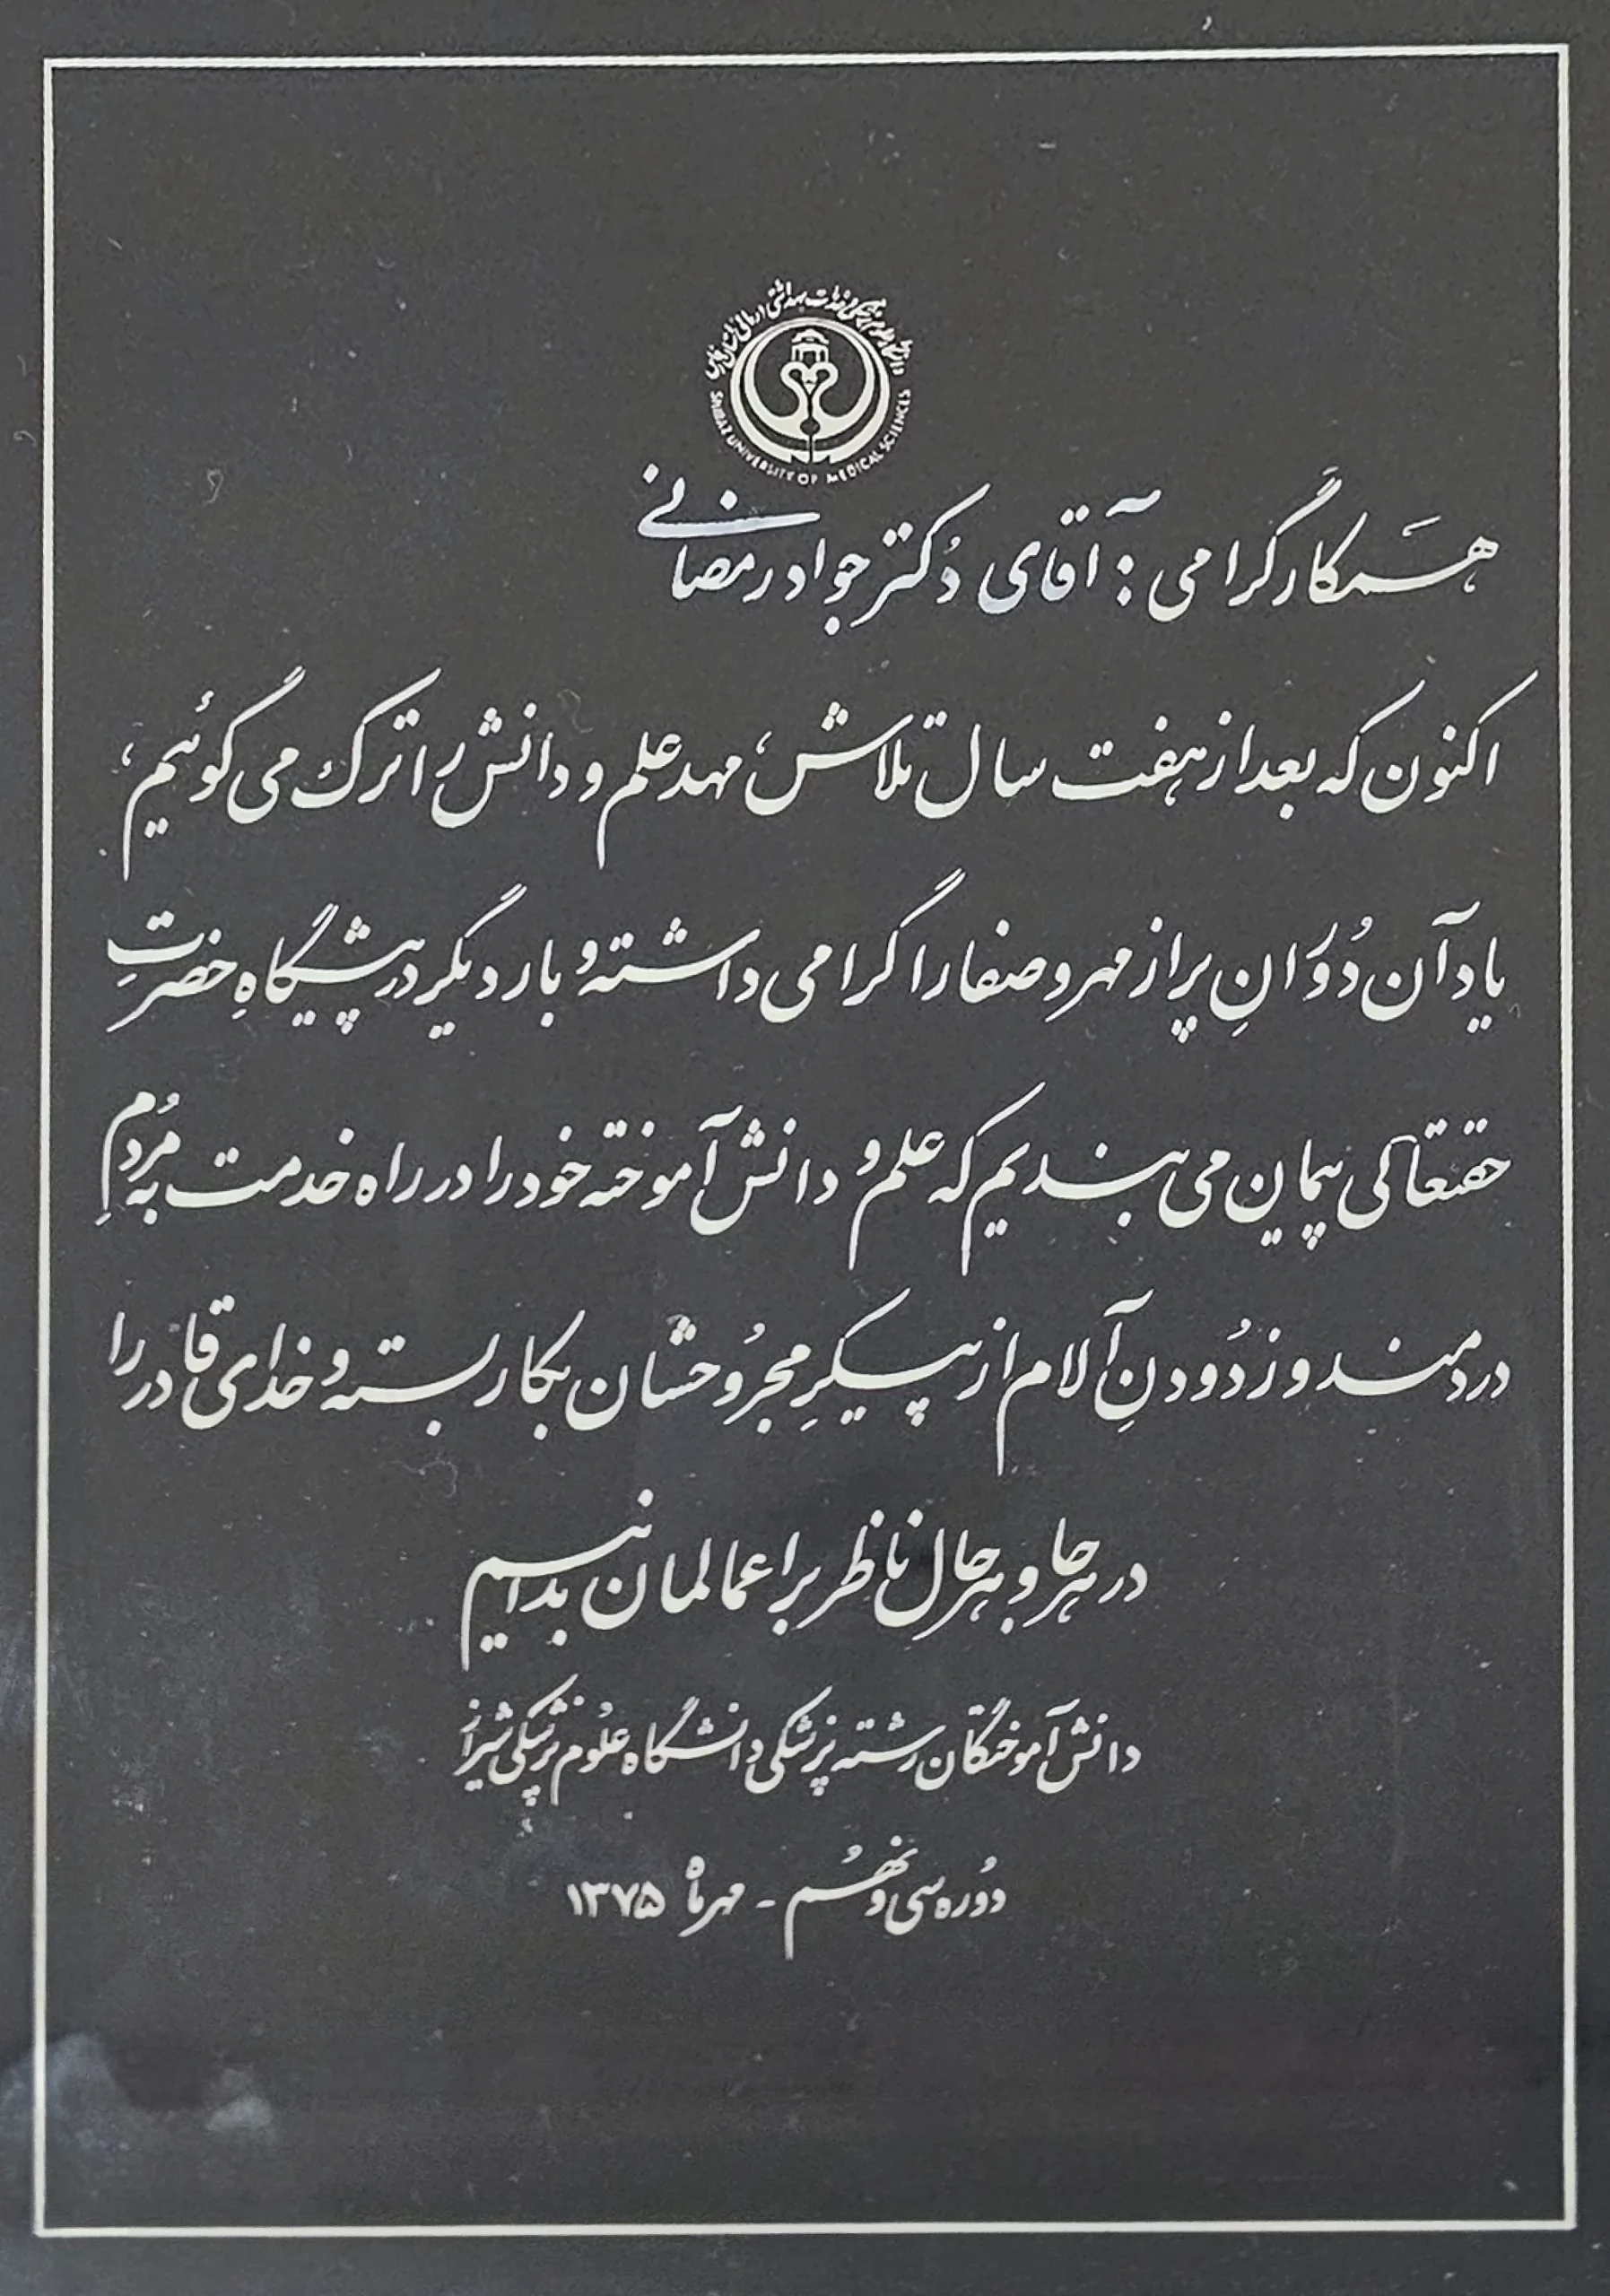 دانشگاه علوم پزشکی و خدمات بهداشتی درمانی استان فارس
SHIRAZ UNIVERSITY OF MEDICAL SCIENCES
همکار گرامی : آقای دکتر جواد رمضانی
اکنون که بعد از هفت سال تلاش، مهد علم و دانش را ترک می گوئیم،
یاد آن دُوَرانِ پر از مهر و صفا را گرامی داشته و بار دیگر در پیشگاهِ حضرتِ
حقتعالی پیمان می بندیم که علم و دانش آموخته خود را در راه خدمت به مَردُمِ
دردمند و زدُودنِ آلام از پیکرِ مجرُوحشان بکار بسته و خدای قادر را
در هر جا و بهر حال ناظر بر اعمالمان بدانیم
دانش آموختگان رشته پزشکی دانشگاه علُوم پزشکی شیراز
دوُره سی و نهُم - مهرماه ۱۳۷۵